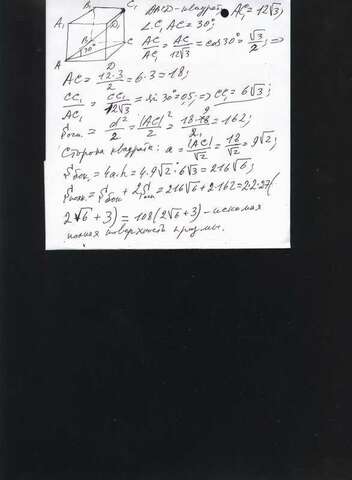 B₁ C₁ ВАСД-квадрат; AC₁ = 12√3;
A₁ D₁ ∠C₁AC = 30°;
B C AC/AC₁ = AC/12√3 = cos 30° = √3/2; ⇒
30°
A D
AC = 12·3/2 = 6·3 = 18;
CC₁/AC₁ = CC₁/12√3 = sin 30° = 0,5; ⇒ CC₁ = 6√3;
Sосн. = d²/2 = |AC|²/2 = 18·18/2 = 162;
Сторона квадрата: a = |AC|/√2 = 18/√2 = 9√2;
Sбок. = 4a·h = 4·9√2·6√3 = 216√6;
Sполн. = Sбок + 2Sосн = 216√6 + 2·162 = 2·2·27(
2√6 + 3) = 108(2√6 + 3) - искомая
полная поверхность призмы.